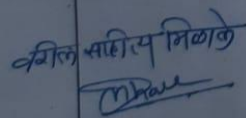 वरील साहित्य मिळाले